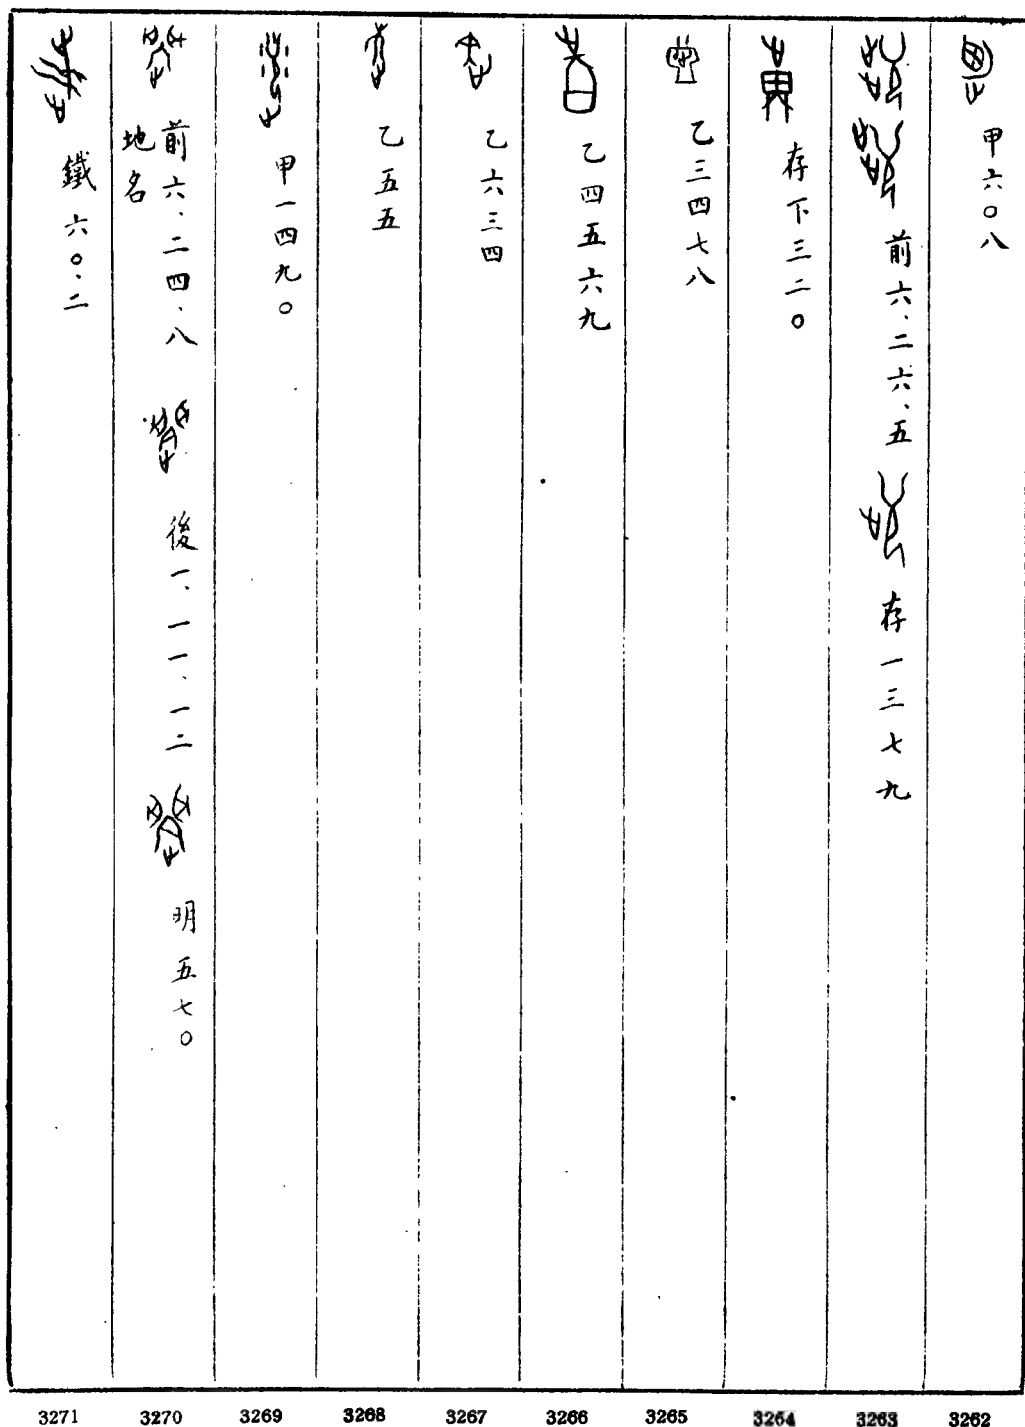 甲六〇八
前六、二六、五
存一三七九
存下三二〇
乙三四七八
乙四五六九
乙六三四
乙五五
甲一四九〇
前六、二四、八
地名
後一、一一、一二
明五七〇
鐵六〇、二
3271 3270 3269 3268 3267 3266 3265 3264 3263 3262